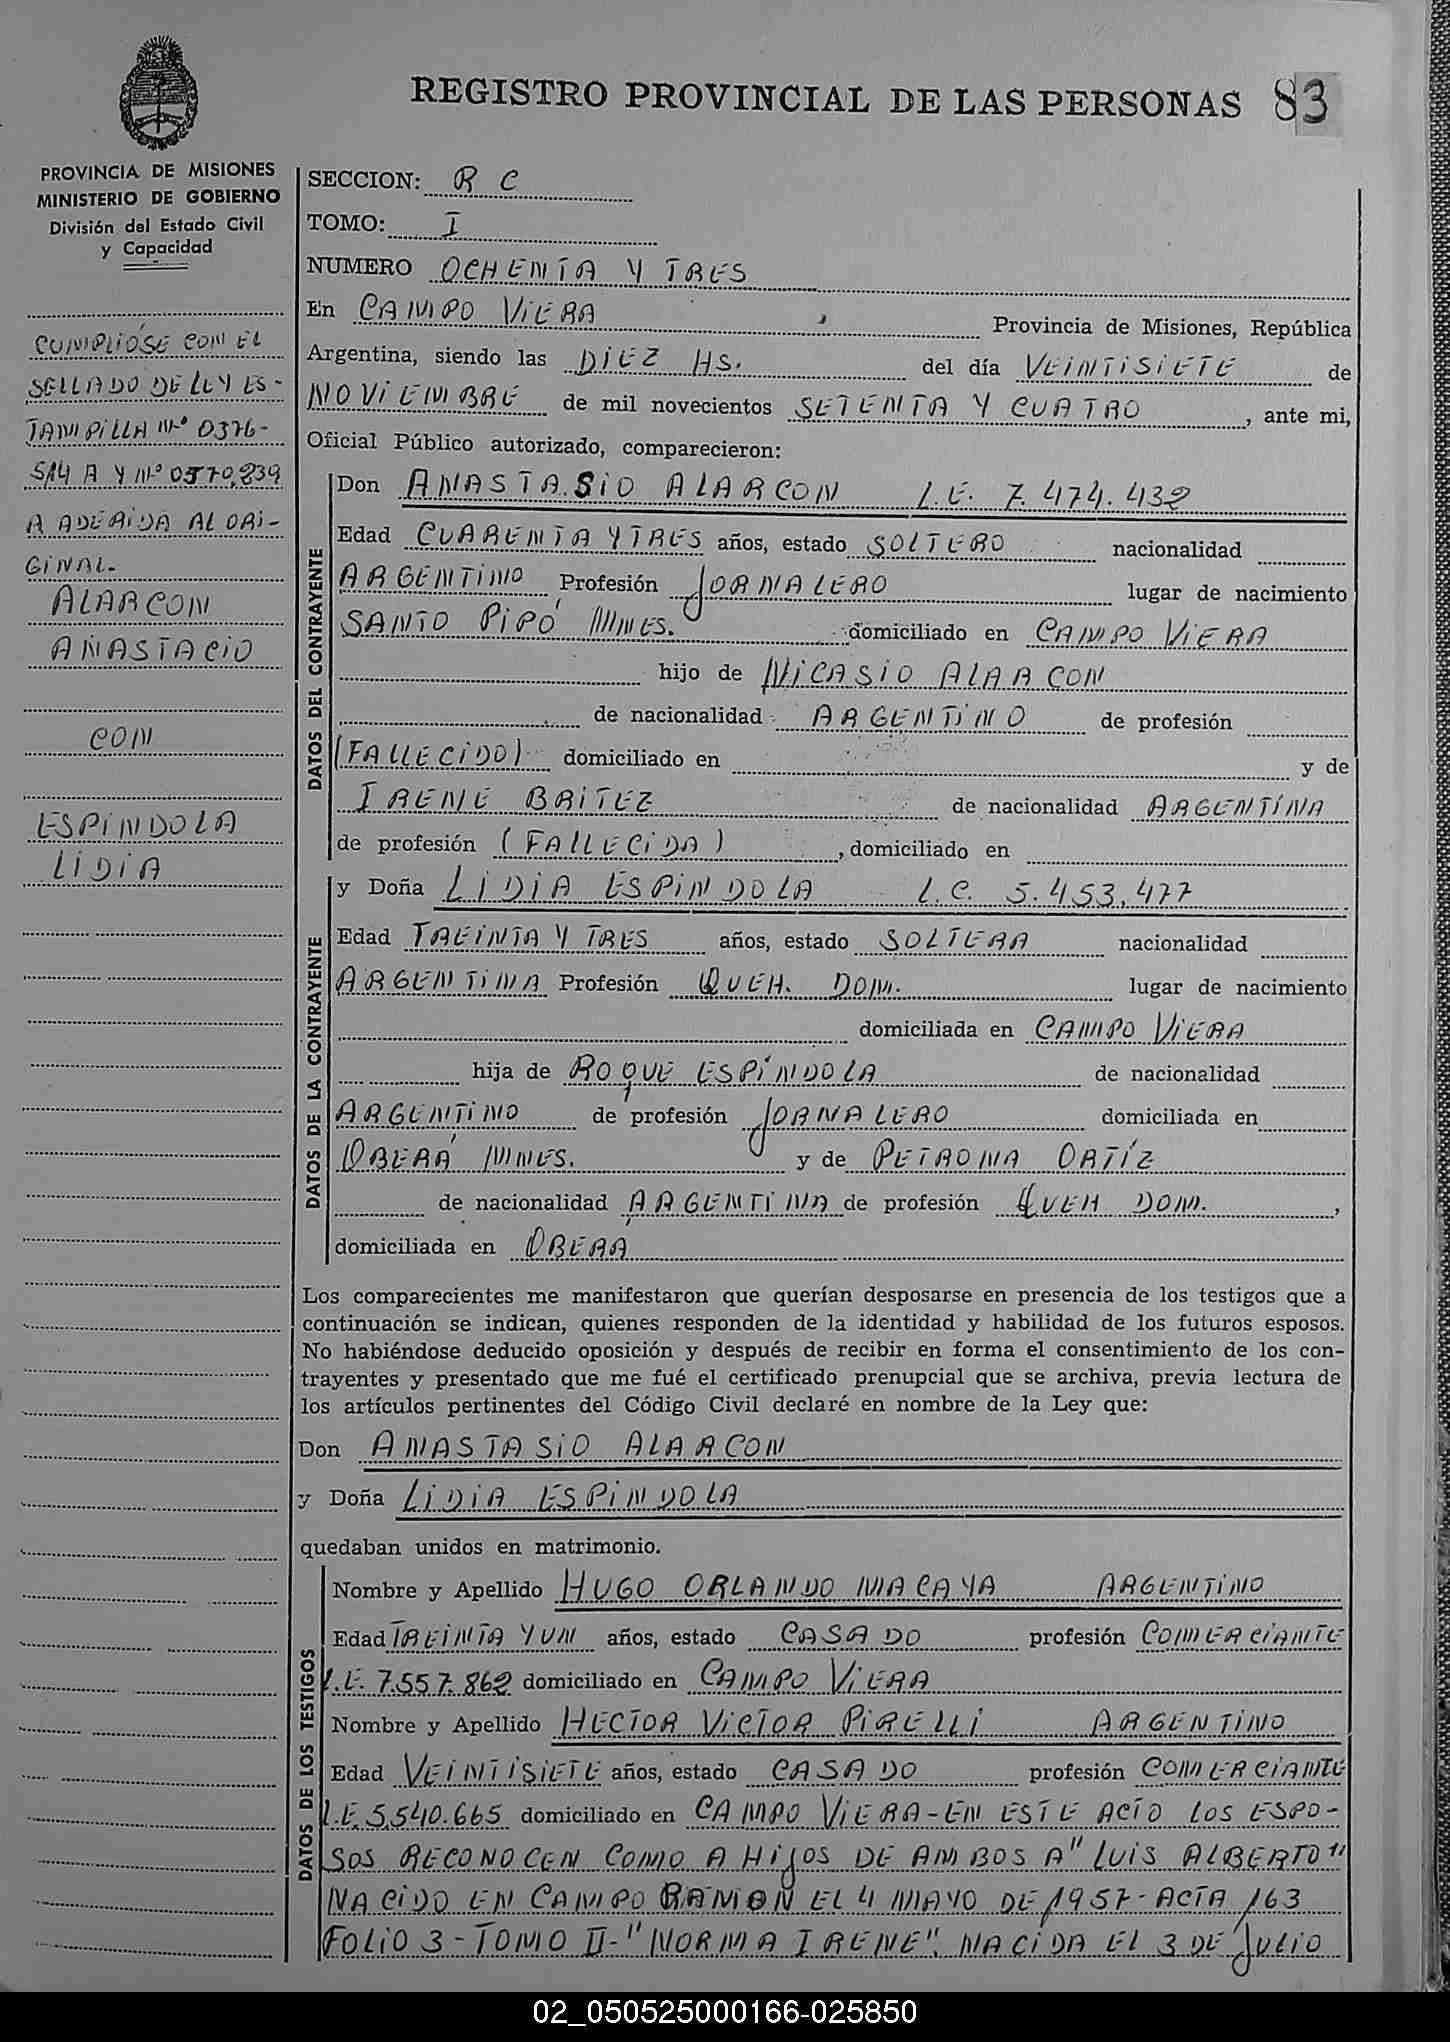 REGISTRO PROVINCIAL DE LAS PERSONAS 83
PROVINCIA DE MISIONES
MINISTERIO DE GOBIERNO
División del Estado Civil
y Capacidad
CUMPLIÓSE CON EL
SELLADO DE LEY ES-
TAMPILLA Nº 0376-
514 A Y Nº 0570,839
A ADERIDA AL ORI-
GINAL.
ALARCON
ANASTACIO
CON
ESPINDOLA
LIDIA
SECCION: R C
TOMO: I
NUMERO OCHENTA Y TRES
En CAMPO VIERA Provincia de Misiones, República
Argentina, siendo las DIEZ HS. del día VEINTISIETE de
NOVIEMBRE de mil novecientos SETENTA Y CUATRO, ante mi,
Oficial Público autorizado, comparecieron:
DATOS DEL CONTRAYENTE
Don ANASTASIO ALARCON L.E. 7.474.432
Edad CUARENTA Y TRES años, estado SOLTERO nacionalidad
ARGENTINO Profesión JORNALERO lugar de nacimiento
SANTO PIPÓ MNES. domiciliado en CAMPO VIERA
hijo de NICASIO ALARCON
de nacionalidad ARGENTINO de profesión
(FALLECIDO) domiciliado en y de
IRENE BRITEZ de nacionalidad ARGENTÍNA
de profesión (FALLECIDA), domiciliado en
DATOS DE LA CONTRAYENTE
y Doña LIDIA ESPINDOLA L.C. 5.453.477
Edad TREINTA Y TRES años, estado SOLTERA nacionalidad
ARGENTINA Profesión QUEH. DOM. lugar de nacimiento
domiciliada en CAMPO VIERA
hija de ROQUE ESPÍNDOLA de nacionalidad
ARGENTINO de profesión JORNALERO domiciliada en
OBERÁ MNES. y de PETRONA ORTÍZ
de nacionalidad ARGENTINA de profesión QUEH DOM.,
domiciliada en OBERA
Los comparecientes me manifestaron que querían desposarse en presencia de los testigos que a
continuación se indican, quienes responden de la identidad y habilidad de los futuros esposos.
No habiéndose deducido oposición y después de recibir en forma el consentimiento de los con-
trayentes y presentado que me fué el certificado prenupcial que se archiva, previa lectura de
los artículos pertinentes del Código Civil declaré en nombre de la Ley que:
Don ANASTASIO ALARCON
y Doña LIDIA ESPINDOLA
quedaban unidos en matrimonio.
DATOS DE LOS TESTIGOS
Nombre y Apellido HUGO ORLANDO MACAYA ARGENTINO
Edad TREINTA Y UN años, estado CASADO profesión COMERCIANTE
L.E. 7.557.862 domiciliado en CAMPO VIERA
Nombre y Apellido HECTOR VICTOR PIRELLI ARGENTINO
Edad VEINTISIETE años, estado CASADO profesión COMERCIANTE
L.E. 5.540.665 domiciliado en CAMPO VIERA-EN ESTE ACTO LOS ESPO-
SOS RECONOCEN COMO A HIJOS DE AMBOS A "LUIS ALBERTO"
NACIDO EN CAMPO RAMON EL 4 MAYO DE 1957-ACTA 163
FOLIO 3-TOMO II-"NORMA IRENE". NACIDA EL 3 DE JULIO
02_050525000166-025850